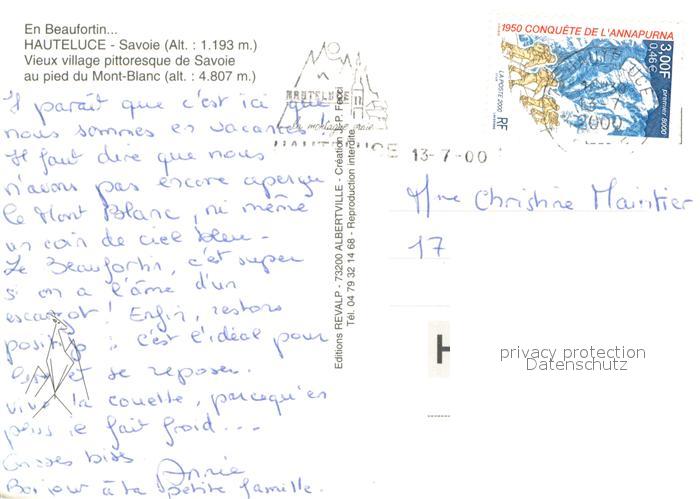 En Beaufortin...
HAUTELUCE - Savoie (Alt. : 1.193 m.)
Vieux village pittoresque de Savoie
au pied du Mont-Blanc (alt. : 4.807 m.)
Il paraît que c'est ici que
nous sommes en vacances !
Il faut dire que nous
n'avons pas encore aperçu
le Mont Blanc, ni même
un coin de ciel bleu -
Le Beaufortin, c'est super
si on a l'âme d'un
escargot ! Enfin, restons
positifs : c'est l'idéal pour
lire et se reposer.
Vive la couette, parcequ'en
plus il fait froid...
Grosses bises
Annie
Bonjour à ta petite famille.
Editions REVALP - 73200 ALBERTVILLE - Création P. Ferrer
Tél. 04 79 32 14 68 - Reproduction interdite.
HAUTELUCE
la montagne vraie
HAUTELUCE
13-7-00
1950 CONQUÊTE DE L'ANNAPURNA
3,00F
0,46 €
premier 8000
LA POSTE 2000
RF
HAUTELUCE
13-7
2000
Mme Christine Maintier
17
H
privacy protection
Datenschutz